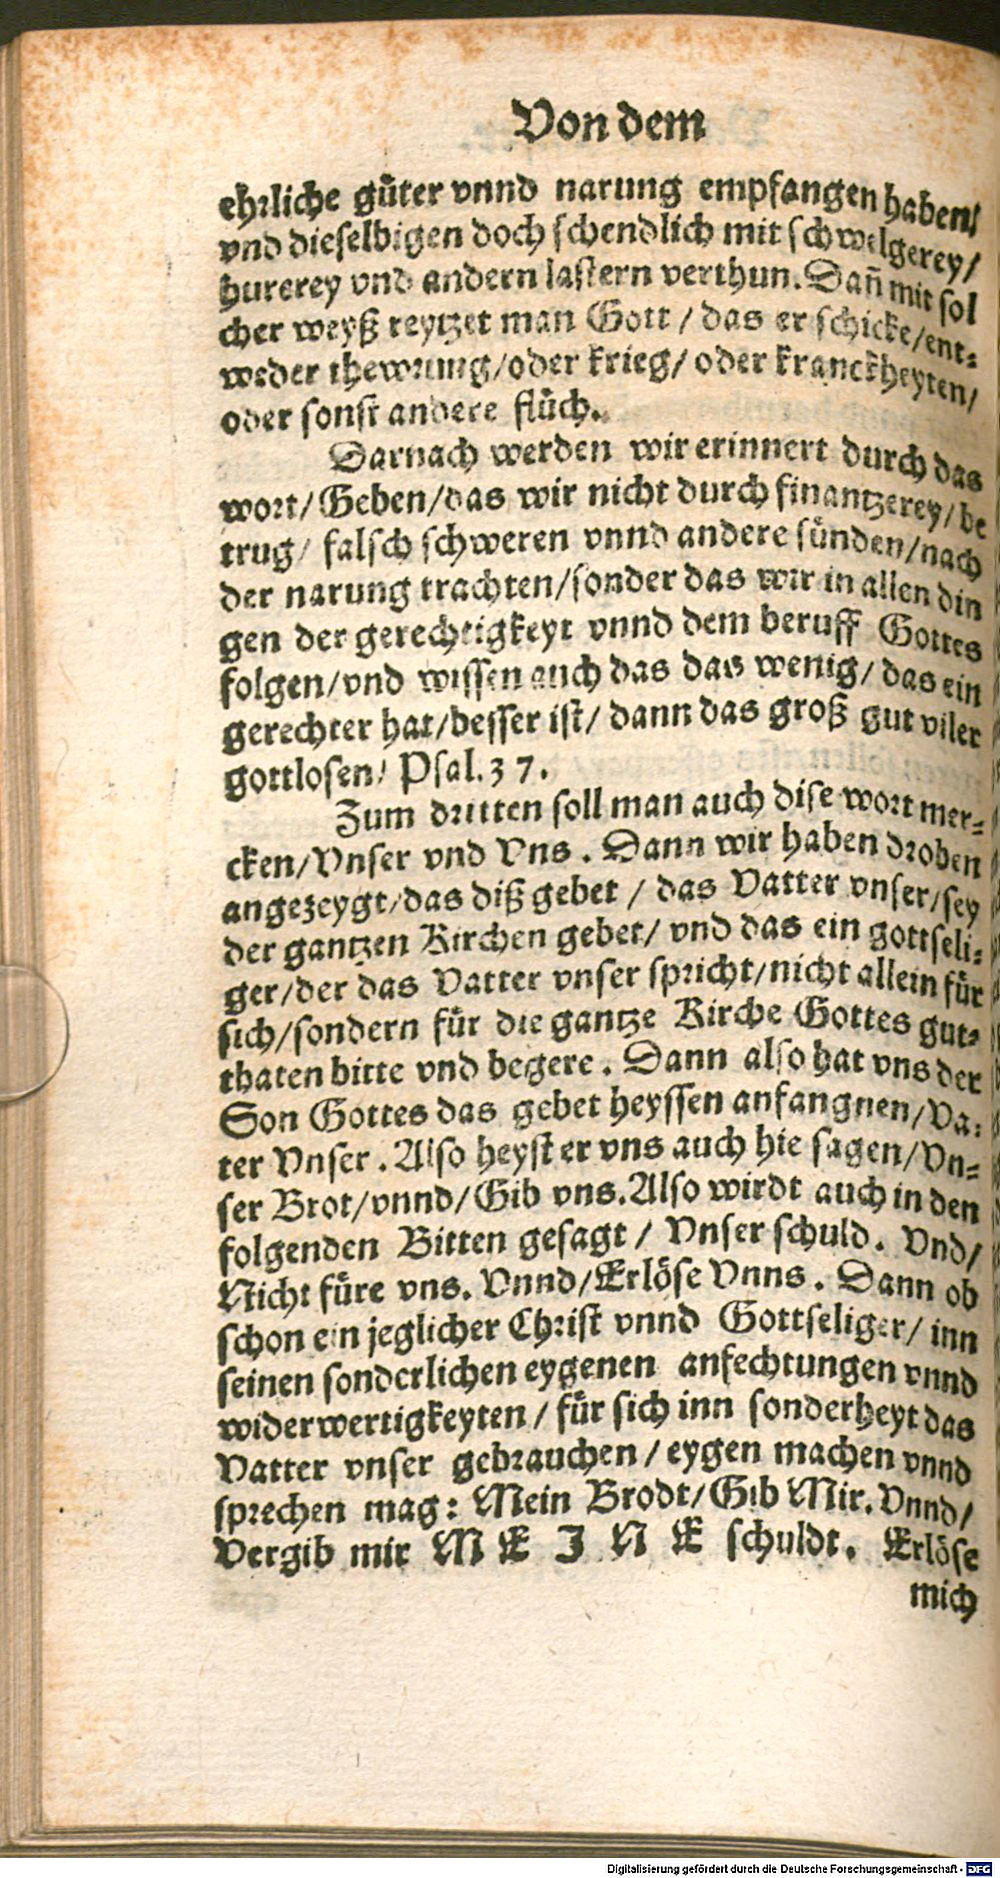 Von dem
ehrliche gůter vnnd narung empfangen haben/
vnd dieselbigen doch schendlich mit schwelgerey/
hurerey vnd andern lastern verthun. Dañ mit sol
cher weyß reytzet man Gott / das er schicke/ent-
weder thewrung/oder krieg/ oder kranckheyten/
oder sonst andere flüch.
Darnach werden wir erinnert durch das
wort/Geben/das wir nicht durch finantzerey/be
trug/ falsch schweren vnnd andere sünden/nach
der narung trachten/sonder das wir in allen din
gen der gerechtigkeyt vnnd dem beruff Gottes
folgen/vnd wissen auch das das wenig/ das ein
gerechter hat/besser ist/ dann das groß gut viler
gottlosen/ Psal.37.
Zum dritten soll man auch dise wort mer-
cken/Vnser vnd Vns. Dann wir haben droben
angezeygt/das diß gebet / das Vatter vnser/sey
der gantzen Kirchen gebet/ vnd das ein gottseli-
ger/der das Vatter vnser spricht/nicht allein für
sich/sondern für die gantze Kirche Gottes gut-
thaten bitte vnd begere. Dann also hat vns der
Son Gottes das gebet heyssen anfangnen/Va-
ter Vnser. Also heyst er vns auch hie sagen/Vn-
ser Brot/vnnd/Gib vns. Also wirdt auch in den
folgenden Bitten gesagt / Vnser schuld. Vnd/
Nicht füre vns. Vnnd/Erlöse Vnns. Dann ob
schon ein jeglicher Christ vnnd Gottseliger/ inn
seinen sonderlichen eygenen anfechtungen vnnd
widerwertigkeyten / für sich inn sonderheyt das
Vatter vnser gebrauchen / eygen machen vnnd
sprechen mag: Mein Brodt/Gib Mir. Vnnd/
Vergib mir M E I N E schuldt. Erlöse
mich
Digitalisierung gefördert durch die Deutsche Forschungsgemeinschaft - DFG